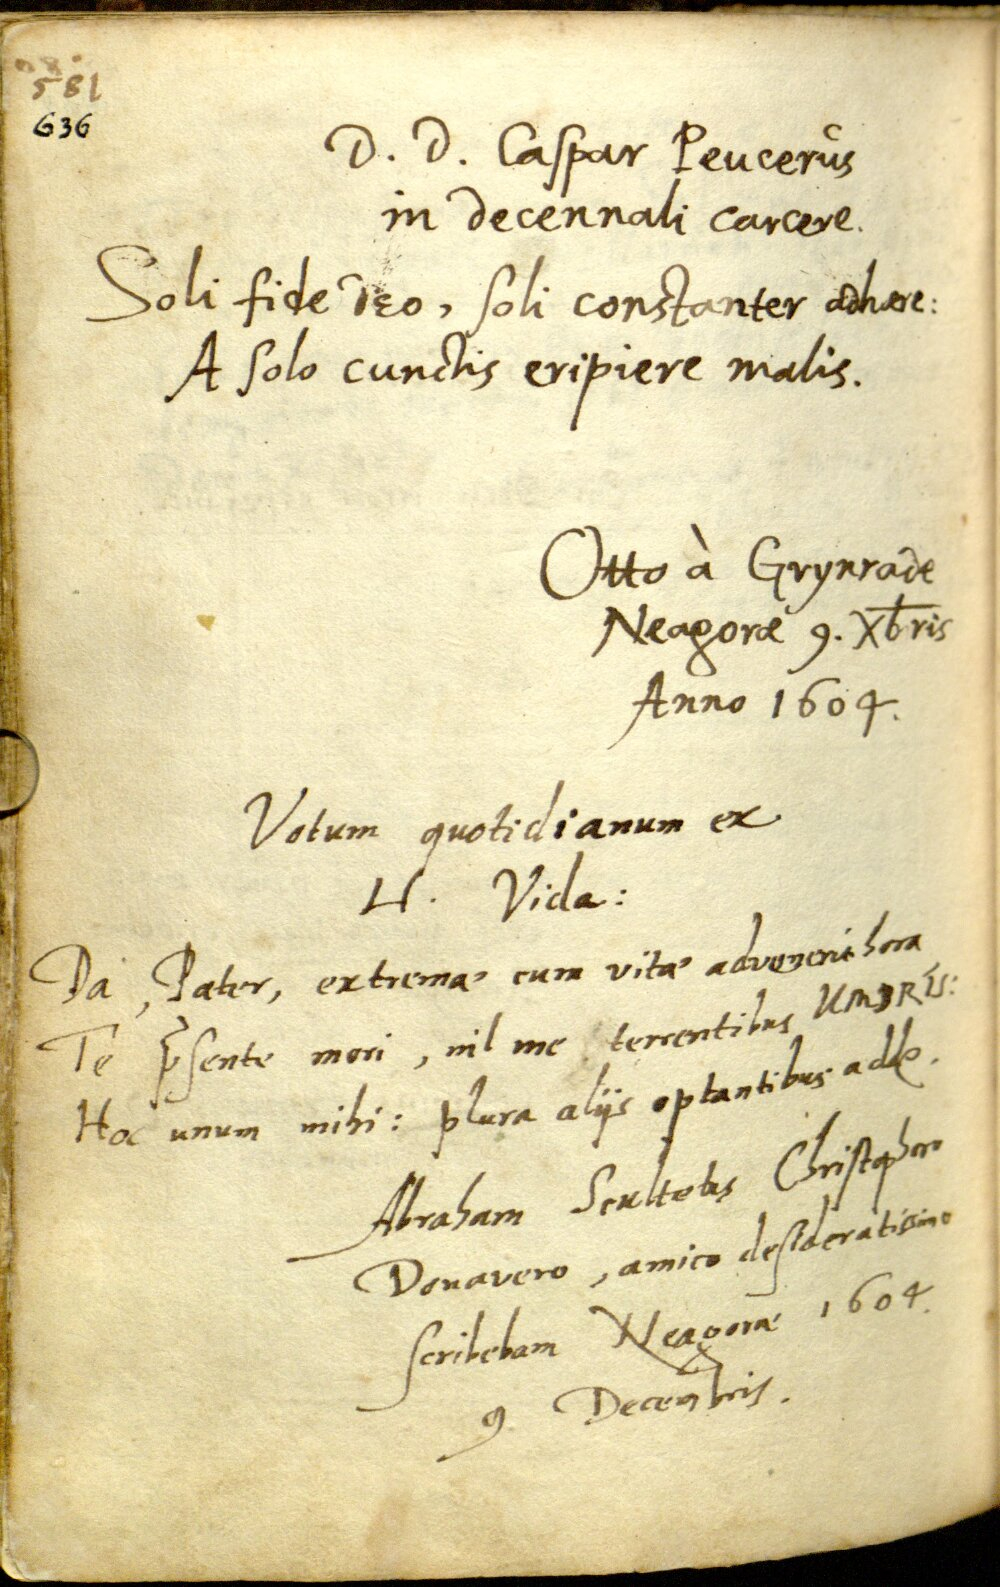 581
636
D. D. Caspar Peucerus
in decennali carcere.
Soli fide deo, soli constanter adhaere:
A solo cunctis eripiere malis.
Otto à Grynrade
Neagorae 9. Xbris
Anno 1604.
Votum quotidianum ex
H. Vida:
Da, Pater, extremae cum vitae advenerit hora
Te p̄sente mori, nil me terrentibus UMBRIS:
Hoc unum mihi: plura alijs optantibus adde.
Abraham Scultetus Christophoro
Donavero, amico desideratissimo
scribebam Neagorae 1604.
9 Decembris.